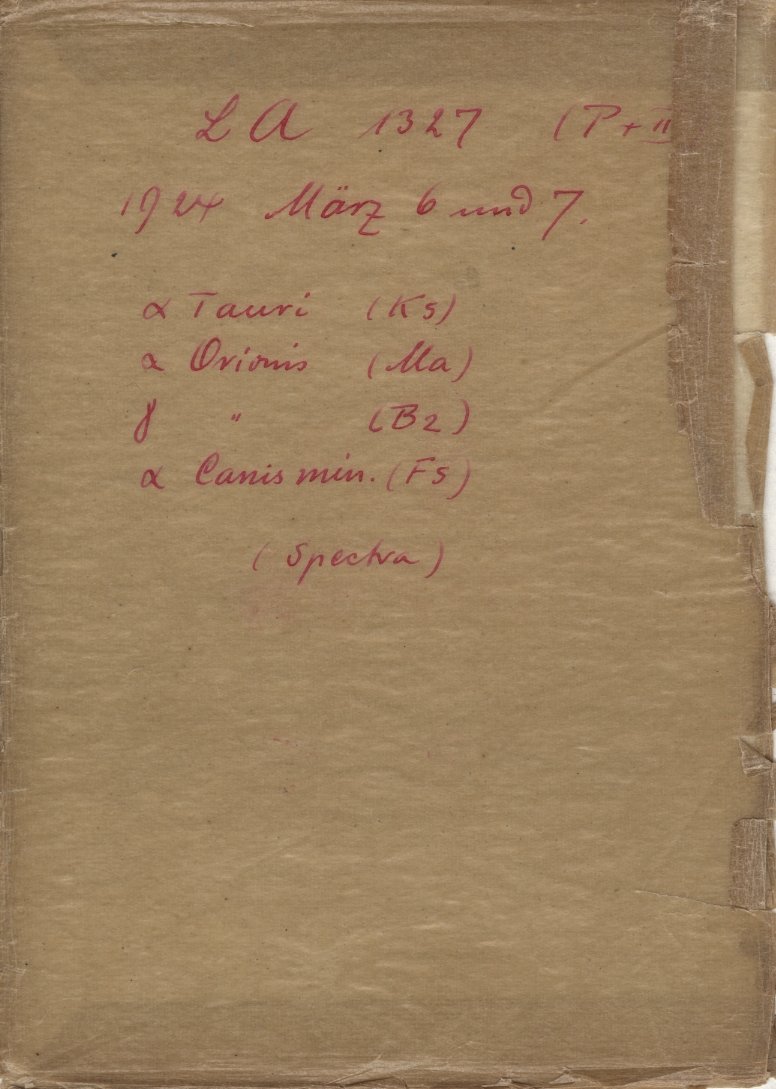 LA 1327 (P+II
1924 März 6 und 7.
α Tauri (K5)
α Orionis (Ma)
γ " (B2)
α Canis min. (F5)
(Spectra)